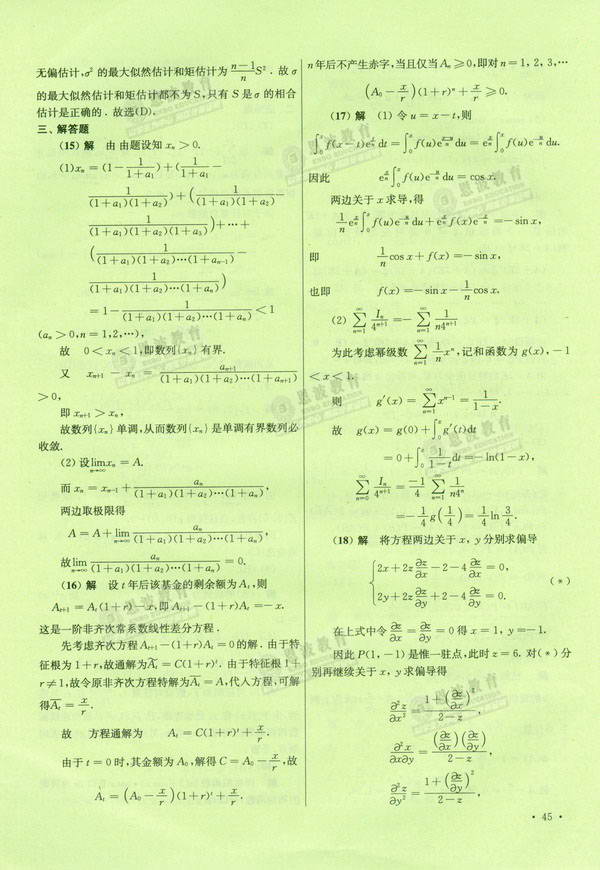 无偏估计,σ² 的最大似然估计和矩估计为 \frac{n-1}{n}S². 故 σ
的最大似然估计和矩估计都不为 S,只有 S 是 σ 的相合
估计是正确的. 故选(D).
三、解答题
(15) 解 由由题设知 xₙ>0.
(1)xₙ = (1-\frac{1}{1+a₁})+(\frac{1}{1+a₁}-
\frac{1}{(1+a₁)(1+a₂)})+(\frac{1}{(1+a₁)(1+a₂)}-
\frac{1}{(1+a₁)(1+a₂)(1+a₃)})+⋯+
(\frac{1}{(1+a₁)(1+a₂)⋯(1+aₙ₋₁)}-
\frac{1}{(1+a₁)(1+a₂)⋯(1+aₙ)})
= 1-\frac{1}{(1+a₁)(1+a₂)⋯(1+aₙ)}<1
(aₙ>0,n=1,2,⋯),
故 0<xₙ<1,即数列{xₙ}有界.
又 xₙ₊₁-xₙ = \frac{aₙ₊₁}{(1+a₁)(1+a₂)⋯(1+aₙ)(1+aₙ₊₁)}
>0,
即 xₙ₊₁>xₙ,
故数列{xₙ}单调,从而数列{xₙ}是单调有界数列必
收敛.
(2) 设\lim_{n→∞}xₙ = A.
而 xₙ = xₙ₋₁+\frac{aₙ}{(1+a₁)(1+a₂)⋯(1+aₙ)},
两边取极限得
A = A+\lim_{n→∞}\frac{aₙ}{(1+a₁)(1+a₂)⋯(1+aₙ)},
故\lim_{n→∞}\frac{aₙ}{(1+a₁)(1+a₂)⋯(1+aₙ)} = 0.
(16) 解 设 t 年后该基金的剩余额为 Aₜ,则
Aₜ₊₁ = Aₜ(1+r)-x,即 Aₜ₊₁-(1+r)Aₜ = -x.
这是一阶非齐次常系数线性差分方程.
先考虑齐次方程 Aₜ₊₁-(1-r)Aₜ=0 的解. 由于特
征根为 1+r,故通解为\overline{A}ₜ = C(1+r)ᵗ. 由于特征根 1+
r≠1,故令原非齐次方程特解为\overline{A}ₜ = A,代入方程,可解
得\overline{A}ₜ = \frac{x}{r}.
故 方程通解为 Aₜ = C(1+r)ᵗ+\frac{x}{r}.
由于 t=0 时,其金额为 A₀,解得 C = A₀-\frac{x}{r},故
Aₜ = (A₀-\frac{x}{r})(1+r)ᵗ+\frac{x}{r}.
n 年后不产生赤字,当且仅当 Aₙ⩾0,即对 n=1,2,3,⋯
(A₀-\frac{x}{r})(1+r)ⁿ+\frac{x}{r}⩾0.
(17) 解 (1) 令 u = x-t,则
∫_0^x f(x-t)e^{\frac{t}{n}}dt = ∫_0^x f(u)e^{\frac{x-u}{n}}du = e^{\frac{x}{n}}∫_0^x f(u)e^{-\frac{u}{n}}du.
因此 e^{\frac{x}{n}}∫_0^x f(u)e^{-\frac{u}{n}}du = cos x.
两边关于 x 求导,得
\frac{1}{n}e^{\frac{x}{n}}∫_0^x f(u)e^{-\frac{u}{n}}du+e^{\frac{x}{n}}f(x)e^{-\frac{x}{n}} = -sin x,
即 \frac{1}{n}cos x+f(x) = -sin x,
也即 f(x) = -sin x-\frac{1}{n}cos x.
(2) ∑_{n=1}^∞ \frac{Iₙ}{4^{n+1}} = -∑_{n=1}^∞ \frac{1}{n4^{n+1}}
为此考虑幂级数 ∑_{n=1}^∞ \frac{1}{n}xⁿ,记和函数为 g(x),-1
<x<1.
则 g′(x) = ∑_{n=1}^∞ x^{n-1} = \frac{1}{1-x}.
故 g(x) = g(0)+∫_0^x g′(t)dt
= 0+∫_0^x \frac{1}{1-t}dt = -ln(1-x),
∑_{n=0}^∞ \frac{Iₙ}{4^{n+1}} = \frac{-1}{4}∑_{n=1}^∞ \frac{1}{n4ⁿ}
= -\frac{1}{4}g(\frac{1}{4}) = \frac{1}{4}ln\frac{3}{4}.
(18) 解 将方程两边关于 x,y 分别求偏导
{2x+2z\frac{∂z}{∂x}-2-4\frac{∂z}{∂x} = 0,
2y+2z\frac{∂z}{∂y}+2-4\frac{∂z}{∂y} = 0. (*)
在上式中令\frac{∂z}{∂x} = \frac{∂z}{∂y} = 0 得 x = 1,y = -1.
因此 P(1,-1) 是惟一驻点,此时 z = 6. 对(*)分
别再继续关于 x,y 求偏导得
\frac{∂²z}{∂x²} = \frac{1+(\frac{∂z}{∂x})²}{2-z},
\frac{∂²x}{∂x∂y} = \frac{(\frac{∂z}{∂x})(\frac{∂z}{∂y})}{2-z},
\frac{∂²z}{∂y²} = \frac{1+(\frac{∂z}{∂y})²}{2-z}.
• 45 •
恩波教育
恩波教育
恩波教育
恩波教育
恩波教育